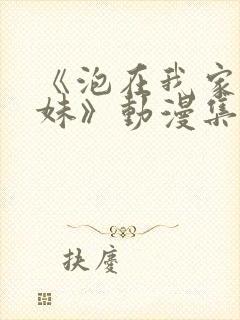 《泡在我家
妹》動漫集
扶慶